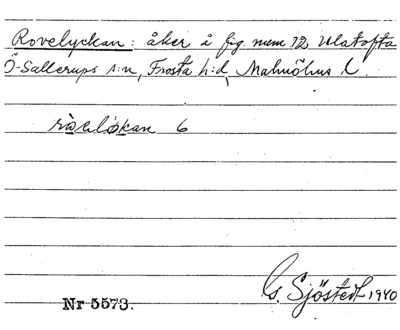 Rovelyckan: åker å fig. num. 12 Ulatofta
Ö-Sallerups s:n, Frosta h:d, Malmöhus l.
6
G. Sjöstedt 1940
Nr 5573.